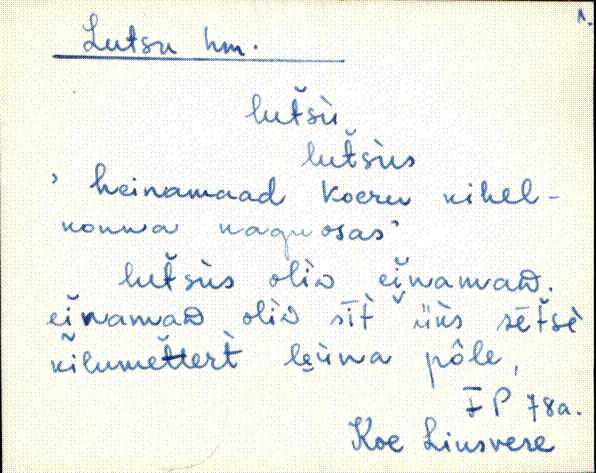 1.
Lutsu hm.
lut̆sù
lut̆sùs
' heinamaad Koeru kihel-
konna kaguosas '
lut̆sùs oliᴅ eĭnamaᴅ.
eĭnamaᴅ oliᴅ sīt ̆üks sēt̆sè
kĭlumet̆tert̀ lȩ̄ùna pôle,
FP 78a.
Koe Liusvere